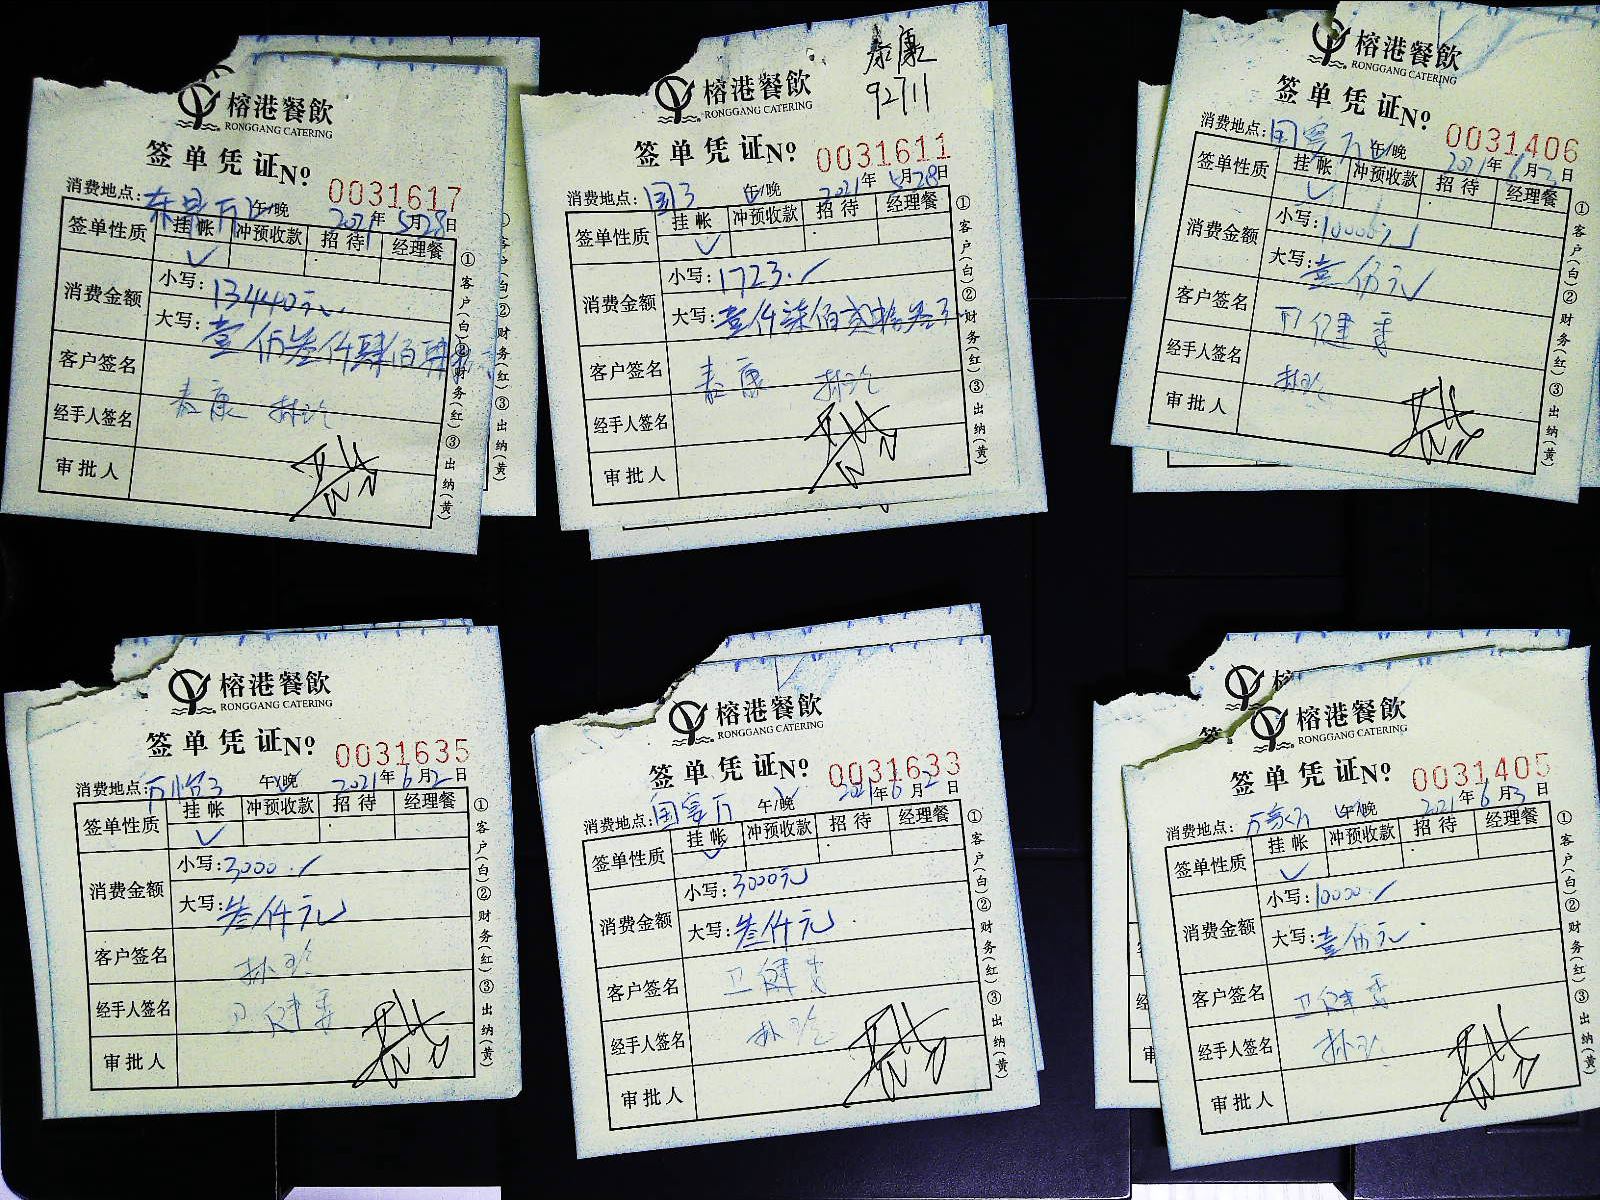 榕港餐飲
RONGGANG CATERING
签单凭证No 0031617
消费地点: 午/晚 2021年5月28日
签单性质 挂帐 冲预收款 招待 经理餐
消费金额 小写:13440元
大写:壹万叁仟肆佰肆拾
客户签名
泰康 林玲
经手人签名
审批人
①客户(白)②财务(红)③出纳(黄)
泰康
92711
榕港餐飲
RONGGANG CATERING
签单凭证No 0031611
消费地点:国3 午/晚 2021年5月28日
签单性质 挂帐 冲预收款 招待 经理餐
消费金额 小写:1723.
大写:壹仟柒佰贰拾叁元
客户签名 泰康 林玲
经手人签名
审批人
①客户(白)②财务(红)③出纳(黄)
榕港餐飲
RONGGANG CATERING
签单凭证No 0031406
消费地点:国宴厅 午/晚 2021年6月2日
签单性质 挂帐 冲预收款 招待 经理餐
消费金额 小写:10000元
大写:壹万元
客户签名 卫健委
经手人签名 林玲
审批人
①客户(白)②财务(红)③出纳(黄)
榕港餐飲
RONGGANG CATERING
签单凭证No 0031635
消费地点:万怡3 午/晚 2021年6月2日
签单性质 挂帐 冲预收款 招待 经理餐
消费金额 小写:3000.
大写:叁仟元
客户签名 林玲
经手人签名 卫健委
审批人
①客户(白)②财务(红)③出纳(黄)
榕港餐飲
RONGGANG CATERING
签单凭证No 0031633
消费地点:国宴厅 午/晚 2021年6月2日
签单性质 挂帐 冲预收款 招待 经理餐
消费金额 小写:3000元
大写:叁仟元
客户签名 卫健委
经手人签名 林玲
审批人
①客户(白)②财务(红)③出纳(黄)
榕港餐飲
RONGGANG CATERING
签单凭证No 0031405
消费地点: 午/晚 2021年6月3日
签单性质 挂帐 冲预收款 招待 经理餐
消费金额 小写:10000.
大写:壹万元
客户签名 卫健委
经手人签名 林玲
审批人
①客户(白)②财务(红)③出纳(黄)